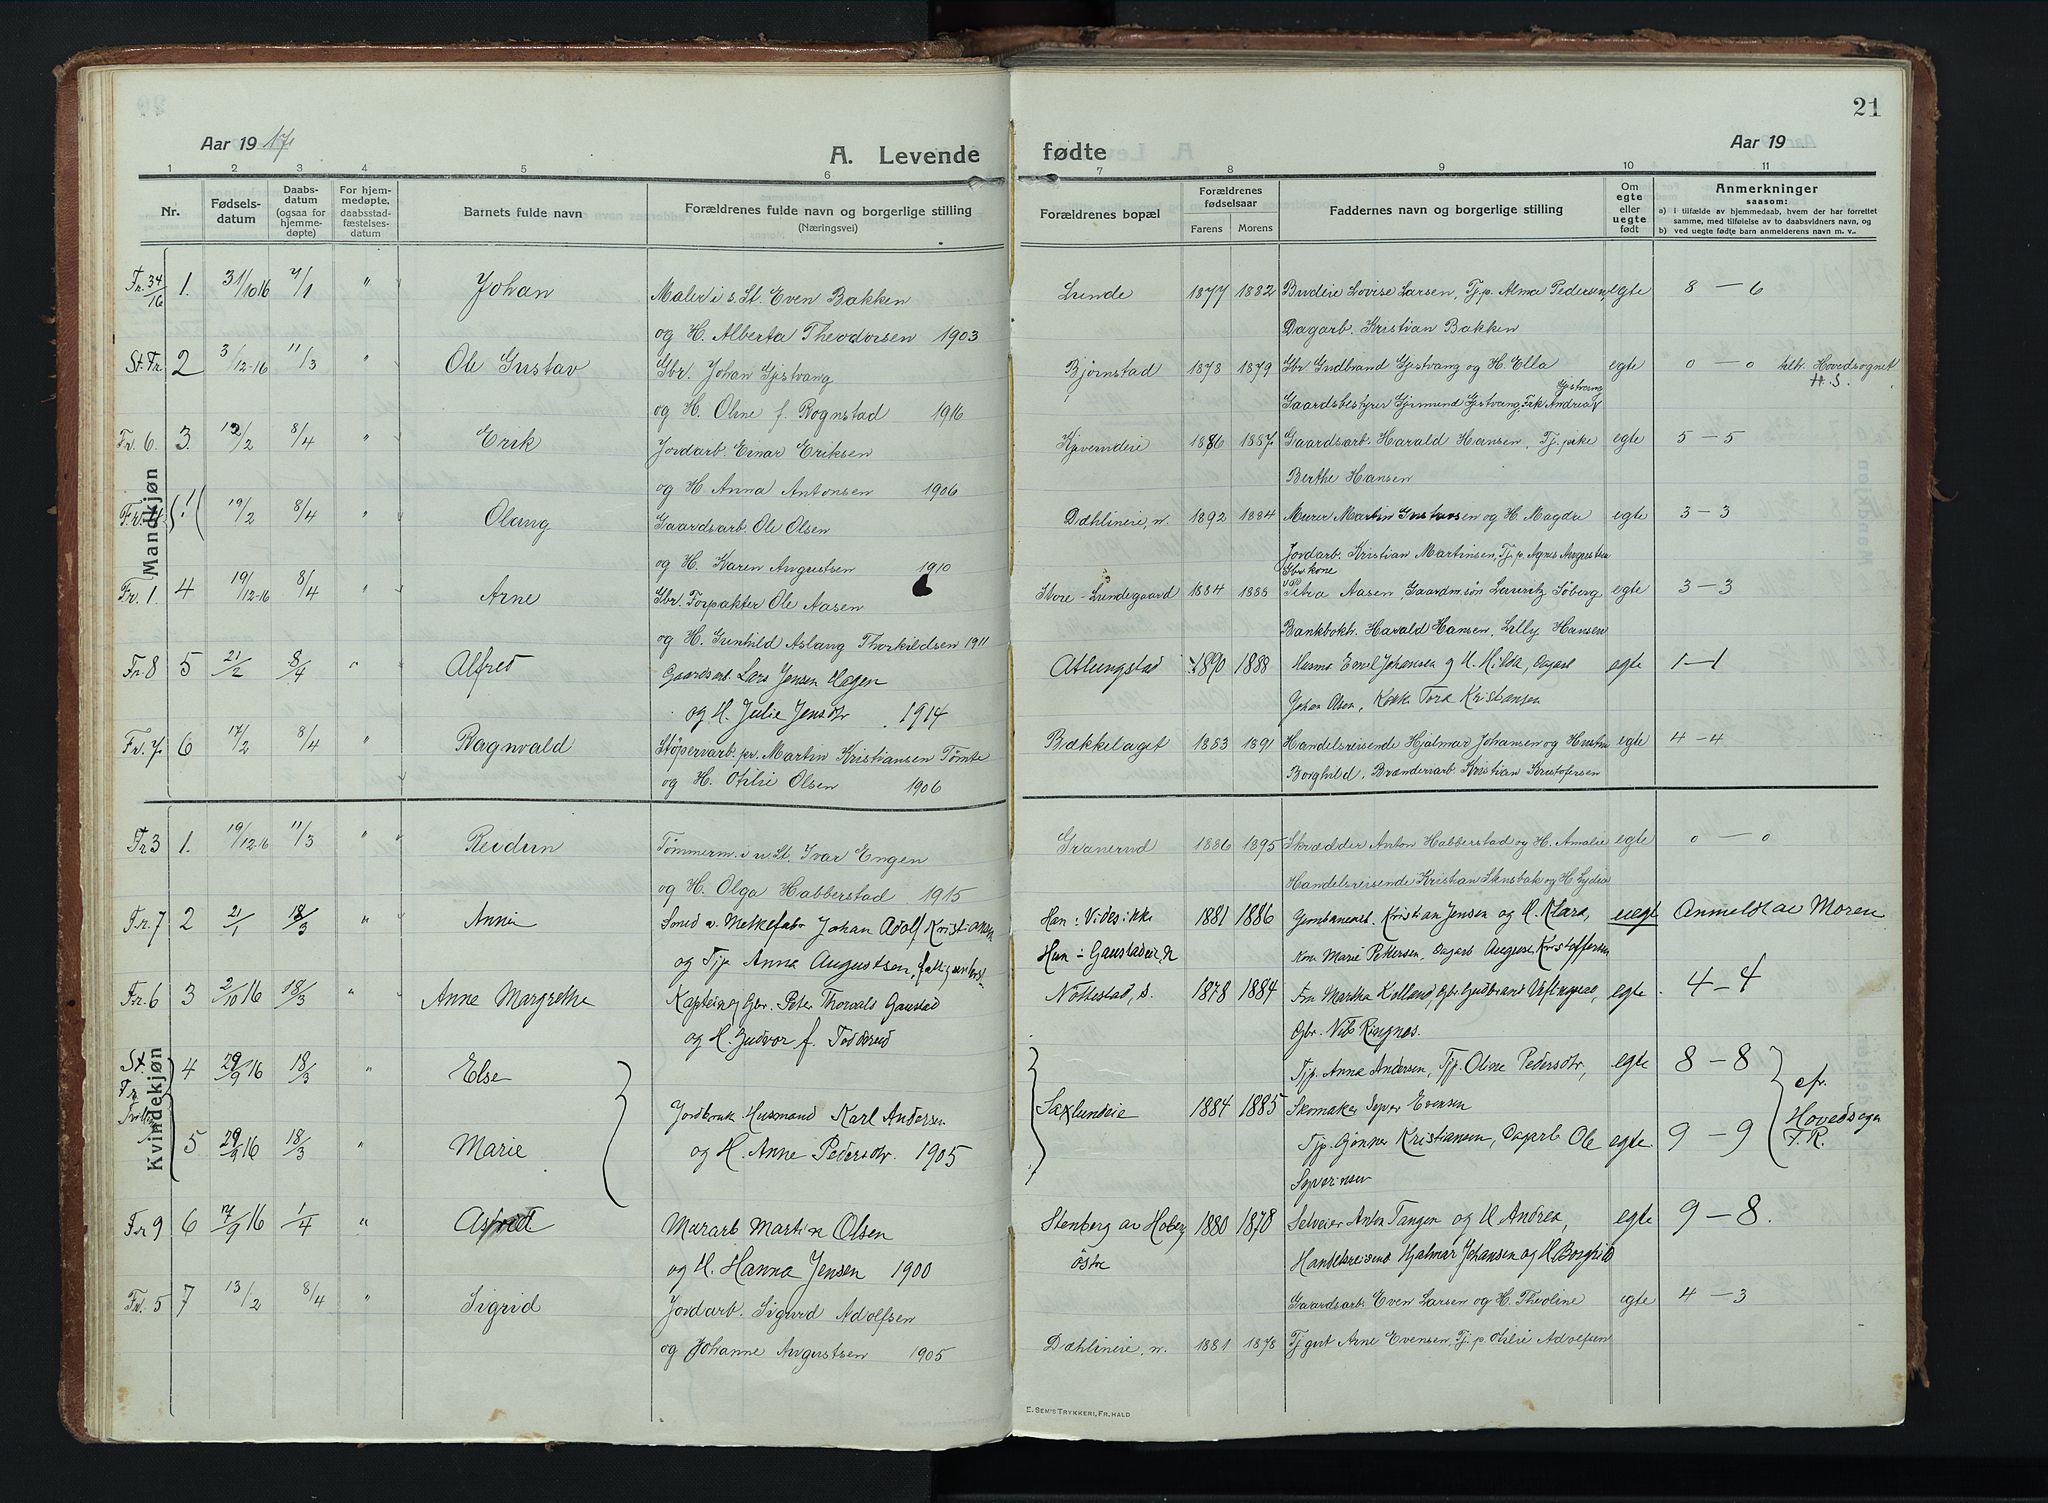 21
Aar 19 17
A. Levende fødte
Aar 19
1 2 3 4 5 6 7 8 9 10 11
Nr.
Fødsels-
datum
Daabs-
datum
(ogsaa for
hjemme-
døpte)
For hjem-
medøpte,
daabsstad-
fæstelses-
datum
Barnets fulde navn
Forældrenes fulde navn og borgerlige stilling
(Næringsvei)
Forældrenes bopæl
Forældrenes
fødselsaar
Farens Morens
Faddernes navn og borgerlige stilling
Om
egte
eller
uegte
født
Anmerkninger
saasom:
a) i tilfælde av hjemmedaab, hvem der har forrettet
samme, med tilføielse av to daabsvidners navn, og
b) ved uegte fødte barn anmelderens navn m. v.
Mandkjøn
Fr. 34/16 1. 31/10 16 7/1 " Johan Maler i s. St. Even Bakken Lunde 1877 1882 Budeie Lovise Larsen, Tj.p. Alma Pedersen, egte 8 – 6
og H. Alberta Theodorsen 1903 Dagarb. Kristian Bakken
St. Fr. 2 3/12-16 11/3 " Ole Gustav Gbr. Johan Gjestvang Bjørnstad 1878 1879 Gbr Gudbrand Gjestvang og H. Ella egte 0 – 0 tilh. Hovedsognet
H. S.
og H. Oline f. Rognstad 1916 Gaardsbestyrer Gjermund Gjestvang, Frk Andrea Gjestvang
Fr. 6. 3. 12/2 8/4 " Erik Jordarb. Einar Eriksen Kjverndeie 1886 1887 Gaardsarb. Harald Hansen, Tj. pike egte 5 – 5
og H. Anna Antonsen 1906 Berthe Hansen
Fr. 4 (!) 19/2 8/4 " Olaug Gaardsarb Ole Olsen Dæhlineie, n. 1892 1884 Murer Martin Gustavsen og H. Magda egte 3 – 3
og H. Karen Augustsen 1910 Jordarb. Kristian Martinsen, Tj. p. Agnes Augustsen
Fr. 1. 4 19/12-16 8/4 " Arne Gbr. Forpakter Ole Aasen Store-Lundegaard 1884 1888 Gbr kone Petra Aasen, Gaardm. søn Lauritz Søberg egte 3 – 3
og H. Gunhild Aslaug Thorkildsen 1911 Bankbokh. Harald Hansen, Lilly Hansen
Fr. 8 5 21/2 8/4 " Alfred Gaardsarb. Lars Jensen Hagen Atlungstad 1890 1888 Husm. Emil Johansen og H. Hilda, Dagarb egte 1 – 1
og H. Julie Jensdtr. 1914 Johan Olsen, Kokke Tora Kristiansen
Fr. 7. 6 17/2 8/4 " Ragnvald Støperiarb. pr. Martin Kristiansen Tømte Bækkelaget 1883 1891 Handelsreisende Hjalmar Johansen og Hustru egte 4 – 4
og H. Otilie Olsen 1906 Borghild, Brænderiarb Kristian Kristofersen
Kvindekjøn
Fr 3 1. 19/12-16 11/3 " Reidun Tømmerm. i u St. Ivar Engen Granerud 1886 1895 Skrædder Anton Habberstad og H. Amalie egte 0 – 0
og H. Olga Habberstad 1915 Handelsreisende Kristian Skusbak og H. Lydia
Fr. 7 2 21/1 18/3 " Anni Smed v. Melkefabr Johan Adolf Kristiansen Han: Videsikke 1881 1886 Jernbanearb. Kristian Jensen og H. Klara, uegt Anmeldt av Moren
og Tjp. Anna Augustsen, Hun: Gaustadeie, n Kone Marie Pettersen, Dagarb August Kristoffersen
Fr. 6 3 2/10 16 18/3 " Anne Margrethe Kaptein og Gbr. Peter Thorvald Gaustad Nøttestad, s. 1878 1884 Fru Martha Kolland, Gbr. Gudbrand egte 4 – 4
og H. Gudvor f. Tødderud Gbr. Nils Ringnes.
St. Fr. Tvilling 4 29/9 16 18/3 " Else Tjp. Anna Andersen, Tjp. Oline Pedersdtr, egte 8 – 8 cfr. Hovedsogn F. R.
Jordbruk Husmand Karl Andersen Saxlundeie 1884 1885 Skomaker Syver Evensen
5 29/9 16 18/3 " Marie og H. Anne Pedersdtr. 1905 Tjp. Gønner Kristiansen, Dagarb Ole egte. 9 – 9
Syversen
Fr 9 6 7/9 16 1/4 " Astrid Murarb Martin Olsen Stenberg av Hoberg østre 1880 1878 Selveier Anton Tangen og H Andrea, egte 9 – 8.
og H. Hanna Jensen 1900 Handelsreisend Hjalmar Johansen og H Borghild
Fr. 5 7 13/2 8/4 " Sigrid Jordarb. Sigurd Adolfsen Gaardsarb Even Larsen og H. Theoline egte 4 – 3
og Johanne Augustsen 1905 Dæhlineie, n. 1881 1878 Tj gut Arne Evensen, Tj. p. Otilie Adolfsen
E. SEM'S TRYKKERI, FR. HALD